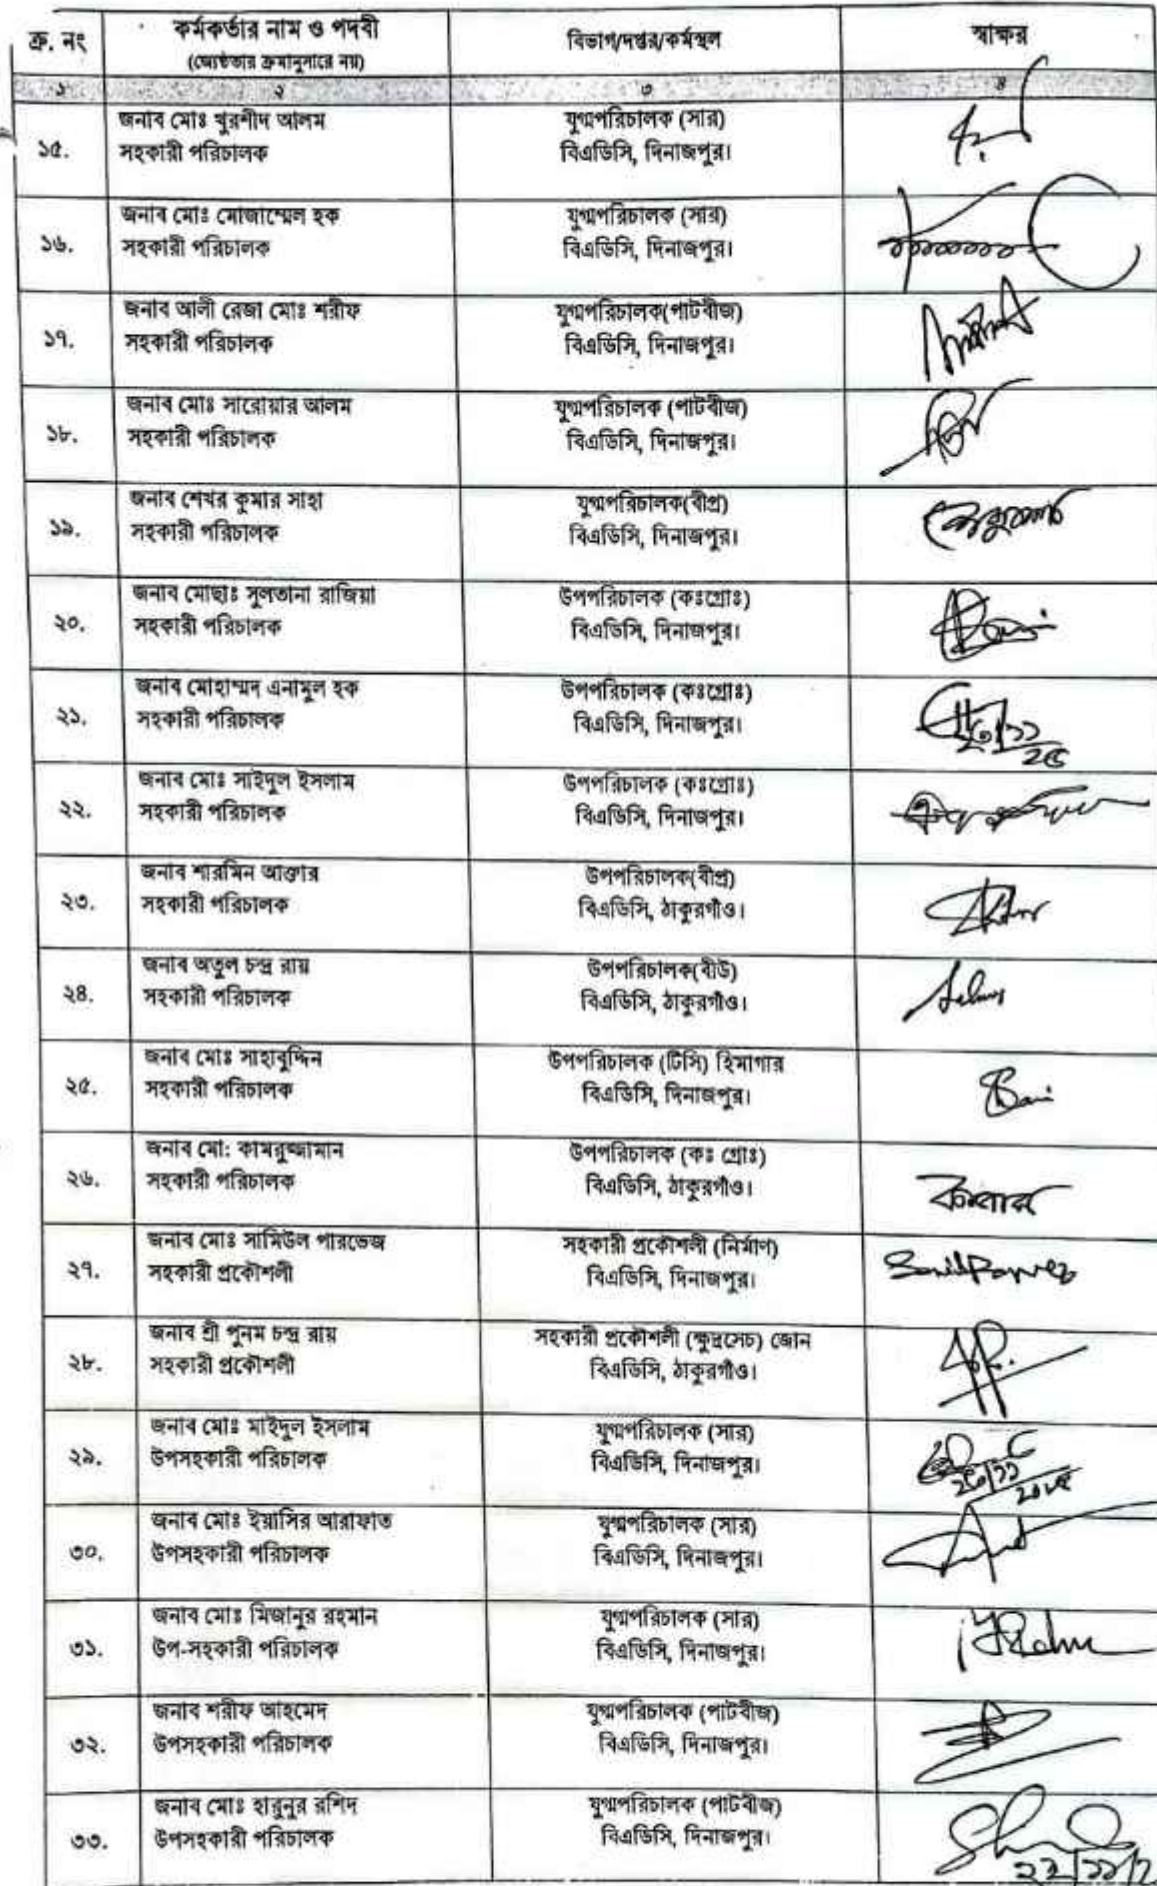 ক্র. নং
কর্মকর্তার নাম ও পদবী
(জ্যেষ্ঠতার ক্রমানুসারে নয়)
বিভাগ/দপ্তর/কর্মস্থল
স্বাক্ষর
১ ২ ৩ ৪
১৫.
জনাব মোঃ খুরশীদ আলম
সহকারী পরিচালক
যুগ্মপরিচালক (সার)
বিএডিসি, দিনাজপুর।
১৬.
জনাব মোঃ মোজাম্মেল হক
সহকারী পরিচালক
যুগ্মপরিচালক (সার)
বিএডিসি, দিনাজপুর।
১৭.
জনাব আলী রেজা মোঃ শরীফ
সহকারী পরিচালক
যুগ্মপরিচালক(পাটবীজ)
বিএডিসি, দিনাজপুর।
১৮.
জনাব মোঃ সারোয়ার আলম
সহকারী পরিচালক
যুগ্মপরিচালক (পাটবীজ)
বিএডিসি, দিনাজপুর।
১৯.
জনাব শেখর কুমার সাহা
সহকারী পরিচালক
যুগ্মপরিচালক(বীপ্র)
বিএডিসি, দিনাজপুর।
২০.
জনাব মোছাঃ সুলতানা রাজিয়া
সহকারী পরিচালক
উপপরিচালক (কঃগ্রোঃ)
বিএডিসি, দিনাজপুর।
২১.
জনাব মোহাম্মদ এনামুল হক
সহকারী পরিচালক
উপপরিচালক (কঃগ্রোঃ)
বিএডিসি, দিনাজপুর।
২২.
জনাব মোঃ সাইদুল ইসলাম
সহকারী পরিচালক
উপপরিচালক (কঃগ্রোঃ)
বিএডিসি, দিনাজপুর।
২৩.
জনাব শারমিন আক্তার
সহকারী পরিচালক
উপপরিচালক(বীপ্র)
বিএডিসি, ঠাকুরগাঁও।
২৪.
জনাব অতুল চন্দ্র রায়
সহকারী পরিচালক
উপপরিচালক(বীউ)
বিএডিসি, ঠাকুরগাঁও।
২৫.
জনাব মোঃ সাহাবুদ্দিন
সহকারী পরিচালক
উপপরিচালক (টিসি) হিমাগার
বিএডিসি, দিনাজপুর।
২৬.
জনাব মো: কামরুজ্জামান
সহকারী পরিচালক
উপপরিচালক (কঃ গ্রোঃ)
বিএডিসি, ঠাকুরগাঁও।
২৭.
জনাব মোঃ সামিউল পারভেজ
সহকারী প্রকৌশলী
সহকারী প্রকৌশলী (নির্মাণ)
বিএডিসি, দিনাজপুর।
২৮.
জনাব শ্রী পুনম চন্দ্র রায়
সহকারী প্রকৌশলী
সহকারী প্রকৌশলী (ক্ষুদ্রসেচ) জোন
বিএডিসি, ঠাকুরগাঁও।
২৯.
জনাব মোঃ মাইদুল ইসলাম
উপসহকারী পরিচালক
যুগ্মপরিচালক (সার)
বিএডিসি, দিনাজপুর।
৩০.
জনাব মোঃ ইয়াসির আরাফাত
উপসহকারী পরিচালক
যুগ্মপরিচালক (সার)
বিএডিসি, দিনাজপুর।
৩১.
জনাব মোঃ মিজানুর রহমান
উপ-সহকারী পরিচালক
যুগ্মপরিচালক (সার)
বিএডিসি, দিনাজপুর।
৩২.
জনাব শরীফ আহমেদ
উপসহকারী পরিচালক
যুগ্মপরিচালক (পাটবীজ)
বিএডিসি, দিনাজপুর।
৩৩.
জনাব মোঃ হারুনুর রশিদ
উপসহকারী পরিচালক
যুগ্মপরিচালক (পাটবীজ)
বিএডিসি, দিনাজপুর।